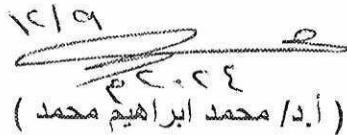 ١٢/٩
٢٠٢٤م
( أ.د/ محمد ابراهيم محمد )